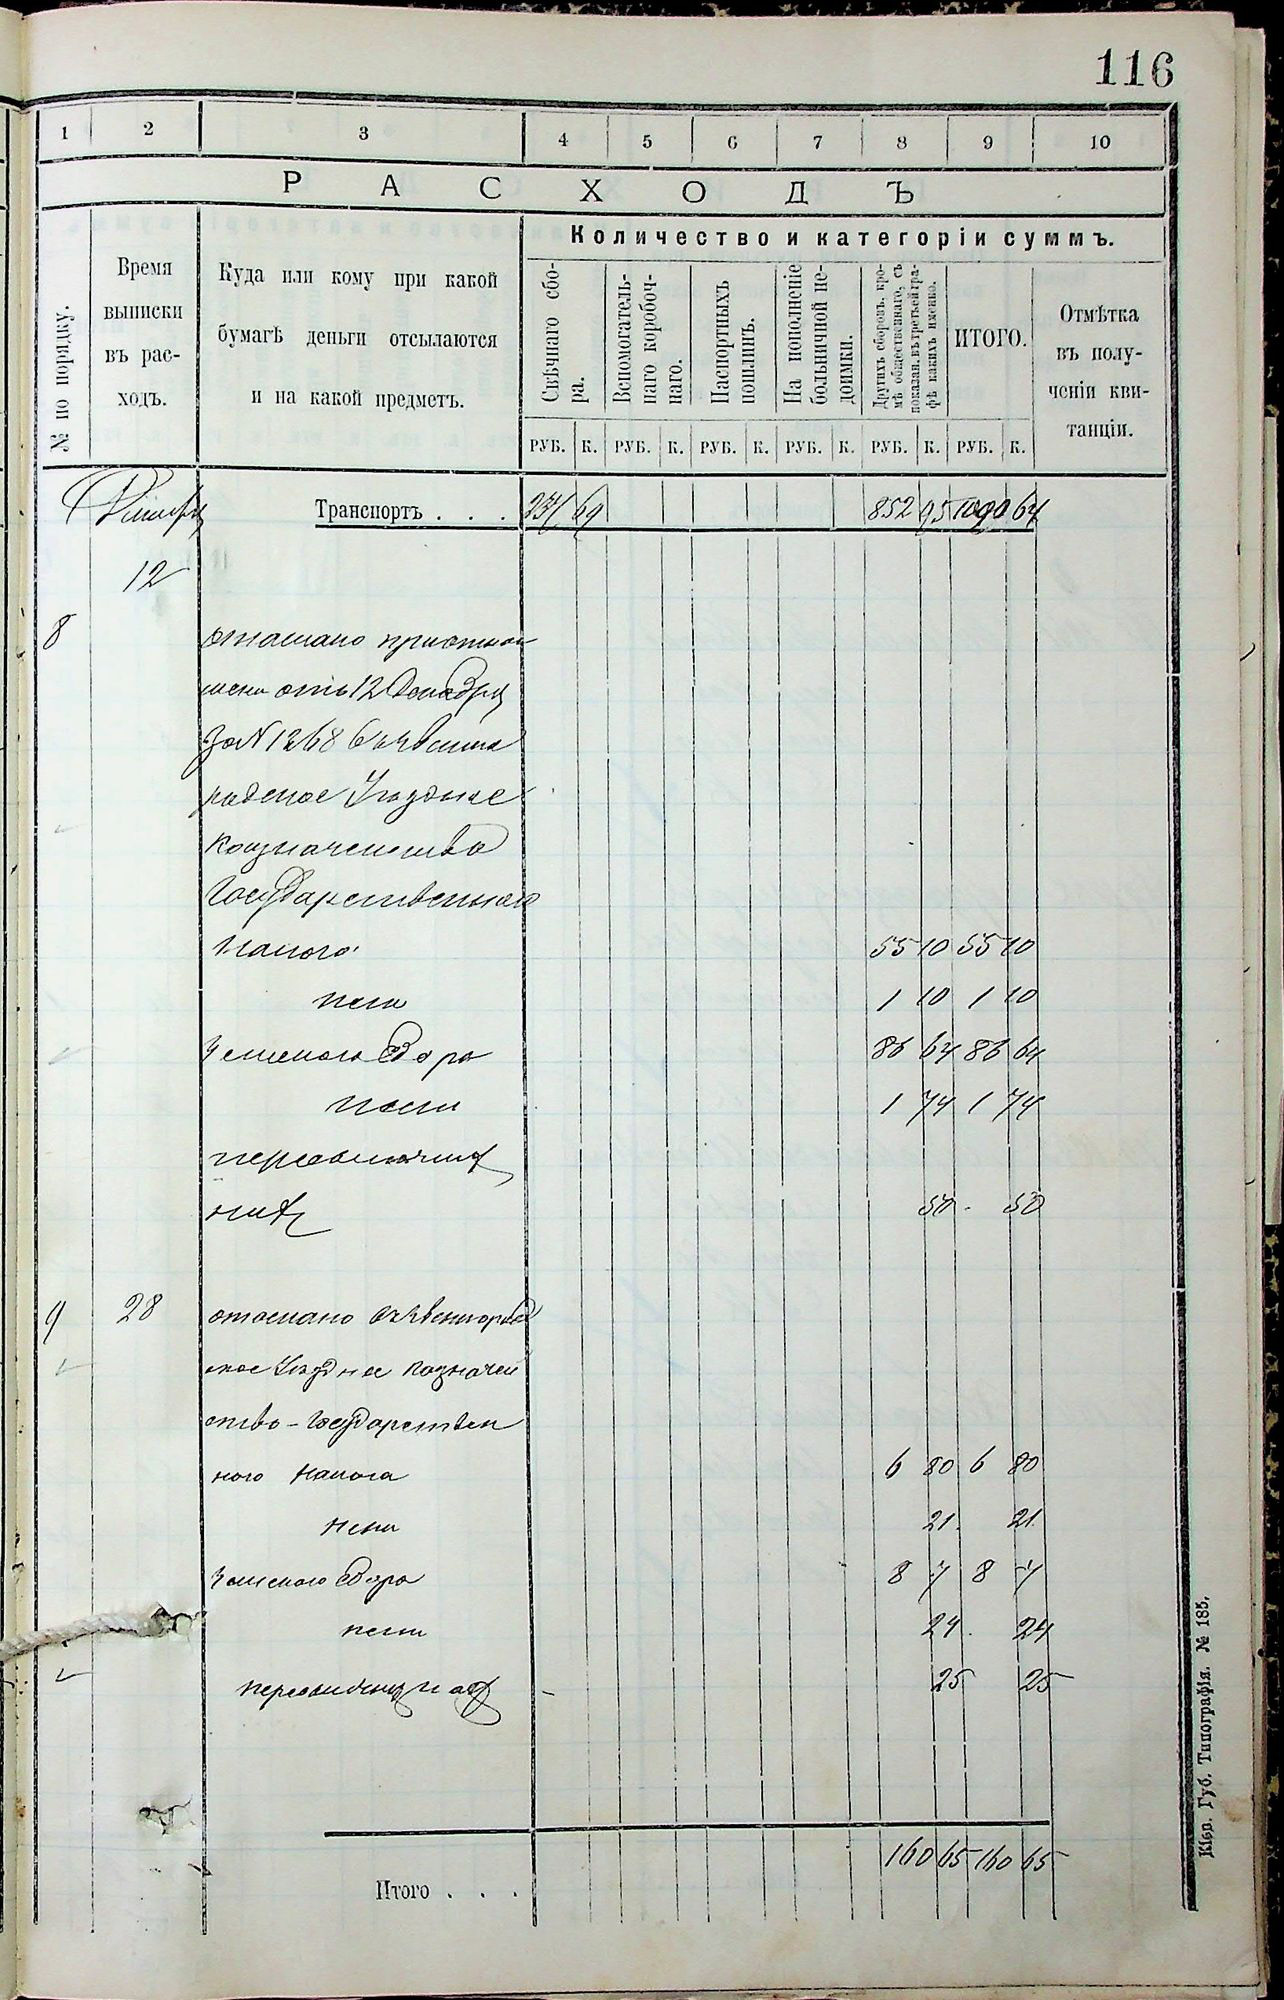 116
1 2 3 4 5 6 7 8 9 10
РАСХОДЪ
№ по порядку.
Время
выписки
въ рас-
ходъ.
Куда или кому при какой
бумагѣ деньги отсылаются
и на какой предметъ.
Количество и категоріи суммъ.
Свѣчнаго сбо-
ра.
Вспомогатель-
наго коробоч-
наго.
Паспортныхъ
пошлинъ.
На пополненіе
больничной не-
доимки.
Другихъ сборовъ, кро-
мѣ общественнаго, съ
показан. въ третьей гра-
фѣ какихъ именно.
ИТОГО.
Отмѣтка
въ полу-
ченіи кви-
танціи.
РУБ. К. РУБ. К. РУБ. К. РУБ. К. РУБ. К. РУБ. К.
Транспортъ . . . 69 852 95 64
12
8 отослано при отно
шени отъ 12 Декабря
за № 1268 въ Звениго
родское Уездное
Козначейство
Государственнаго
Налога 55 10 55 10
пени 1 10 1 10
Земского Сбора 86 64 86 64
пени 1 74 1 74
пересылочных
50 - 50
9 28 отослано въ Звенигород
ское Уездное Казначей
ство - Государствен
ного Налога 6 80 6 80
пени 21. 21
Земского Сбора 8 7 8 7
пени 24. 24
25 25
160 65 160 65
Итого . . .
Кіев. Губ. Типографія. № 185.